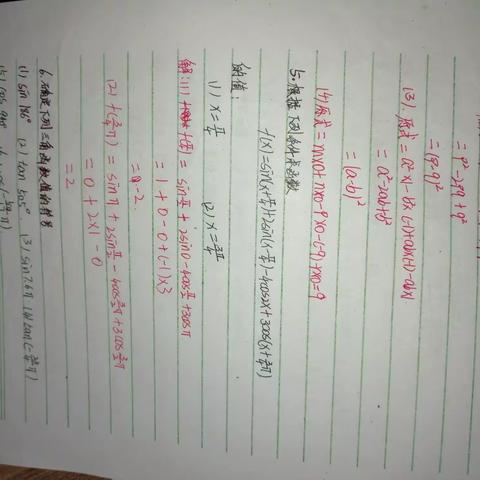 = p² - 2pq + q²
= (p-q)²
(3). 原式 = a²×1 - b²×(-1) + ab×(-1) - ab×1
= a² - 2ab + b²
= (a-b)²
(4) 原式 = m×0 + n×0 - p×0 - (-q) - r×0 = q
5. 根据下列条件求函数
f(x) = sin(x+π/4) + 2sin(x-π/4) - 4cos2x + 3cos(x+3/4π)
的值:
(1) x = π/4 (2) x = 3π/4
解: (1) f(π/4) = sinπ/2 + 2sin0 - 4cosπ/2 + 3cosπ
= 1 + 0 - 0 + (-1)×3
= -2.
(2) f(3/4π) = sinπ + 2sinπ/2 - 4cos3/2π + 3cos3/2π
= 0 + 2×1 - 0
= 2
6. 确定下列三角函数值的符号
(1) sin186° (2) tan505° (3) sin7.6π (4) tan(-23/4π)
(5) cos940° (6) cos(-59/17π)